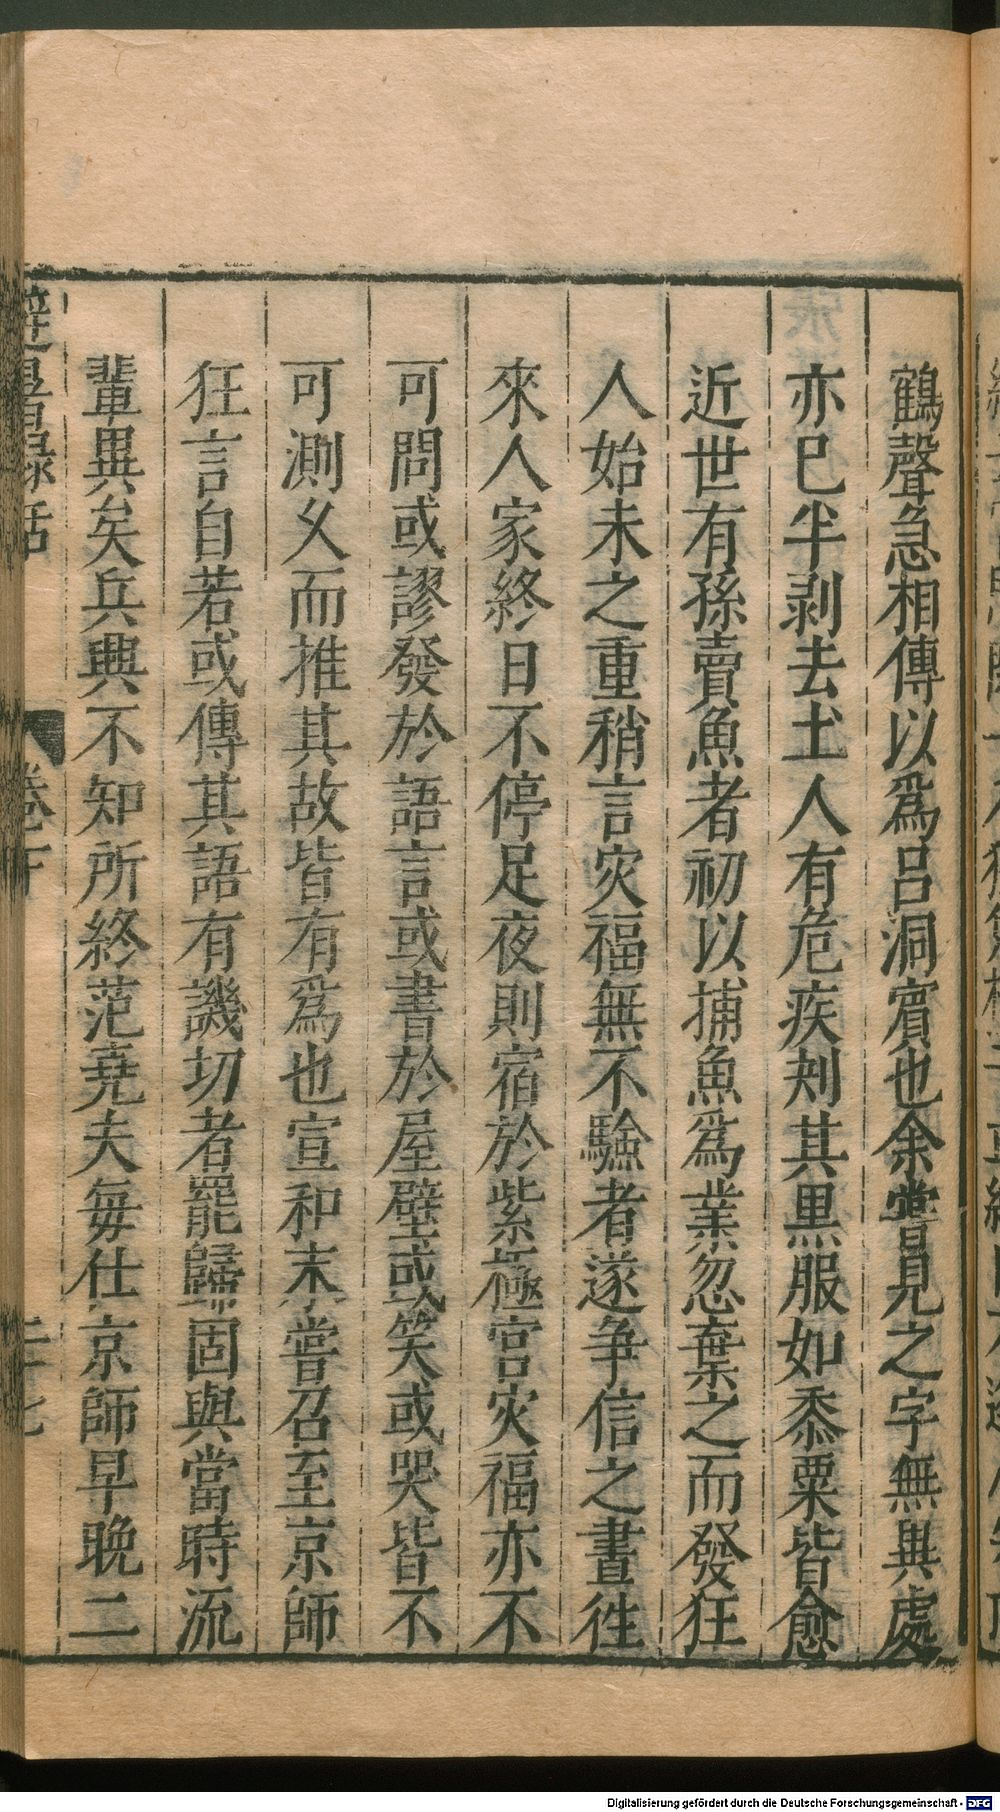 鶴聲急相傳以爲呂洞賓也余嘗見之字無異處
亦巳半剥去土人有危疾刾其黒服如黍粟皆愈
近世有孫賣魚者初以捕魚爲業忽棄之而發狂
人始未之重稍言灾福無不驗者遂争信之晝徃
來人家終日不停足夜則宿於紫極宫灾福亦不
可問或謬發於語言或書於屋壁或笑或哭皆不
可測乆而推其故皆有爲也宣和末嘗召至京師
狂言自若或傳其語有譏切者罷歸固與當時流
輩異矣兵興不知所終范堯夫毎仕京師早晚二
避暑錄話
卷下
二七
Digitalisierung gefördert durch die Deutsche Forschungsgemeinschaft - DFG